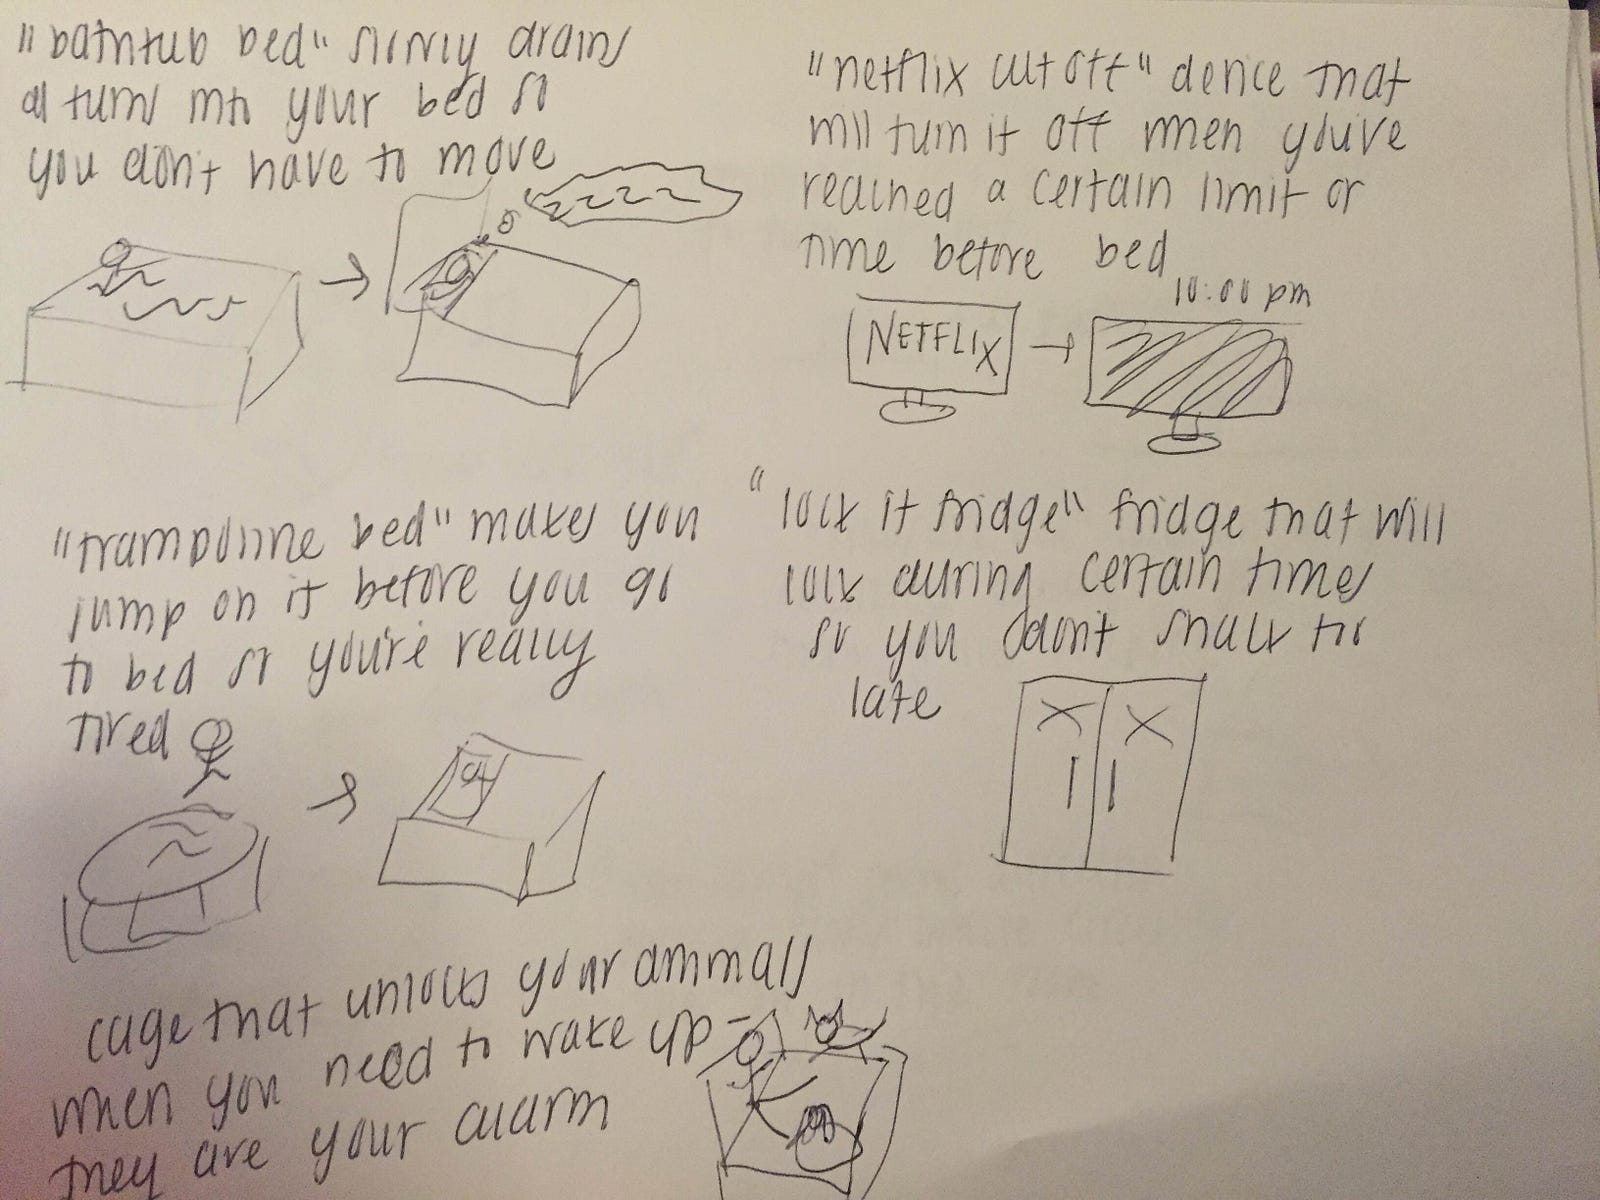 "bathtub bed" slowly drains
al turns into your bed so
you don't have to move
zzzz
"netflix cut off" device that
will turn it off when you've
reached a certain limit or
time before bed
10:00 pm
NETFLIX
"trampoline bed" makes you
jump on it before you go
to bed so you're really
tired
"lock it fridge" fridge that will
lock during certain times
so you don't snack too
late
cage that unlocks your animals
when you need to wake up -
they are your alarm